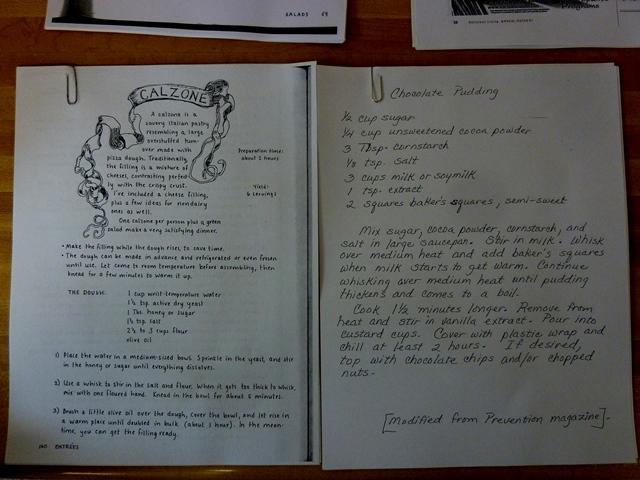 SALADS 69
Programs
CALZONE
A calzone is a
savory Italian pastry
resembling a large
overstuffed turn-
over made with
pizza dough. Traditionally,
the filling is a mixture of
cheeses, contrasting perfect-
ly with the crispy crust.
I've included a cheese filling,
plus a few ideas for nondairy
ones as well.
One calzone per person plus a green
salad make a very satisfying dinner.
Preparation time:
about 2 hours
Yield:
6 servings
• Make the filling while the dough rises, to save time.
• The dough can be made in advance and refrigerated or even frozen
until use. Let come to room temperature before assembling, then
knead for a few minutes to warm it up.
THE DOUGH: 1 cup wrist-temperature water
1½ tsp. active dry yeast
1 Tbs. honey or sugar
1½ tsp. salt
2½ to 3 cups flour
olive oil
1) Place the water in a medium-sized bowl. Sprinkle in the yeast, and stir
in the honey or sugar until everything dissolves.
2) Use a whisk to stir in the salt and flour. When it gets too thick to whisk,
mix with one floured hand. Knead in the bowl for about 5 minutes.
3) Brush a little olive oil over the dough, cover the bowl, and let rise in
a warm place until doubled in bulk (about 1 hour). In the mean-
time, you can get the filling ready.
160 ENTRÉES
Chocolate Pudding
½ cup sugar
¼ cup unsweetened cocoa powder
3 Tbsp. cornstarch
⅛ tsp. salt
3 cups milk or soymilk
1 tsp. extract
2 squares baker's squares, semi-sweet
Mix sugar, cocoa powder, cornstarch, and
salt in large saucepan. Stir in milk. Whisk
over medium heat and add baker's squares
when milk starts to get warm. Continue
whisking over medium heat until pudding
thickens and comes to a boil.
Cook 1½ minutes longer. Remove from
heat and stir in vanilla extract. Pour into
custard cups. Cover with plastic wrap and
chill at least 2 hours. If desired,
top with chocolate chips and/or chopped
nuts.
[Modified from Prevention magazine].